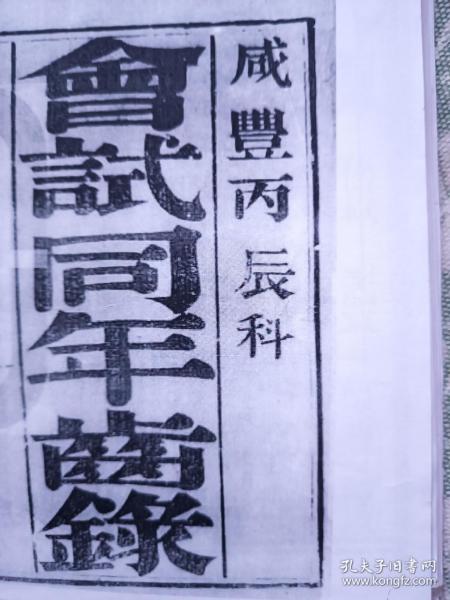 咸豐丙辰科
會試同年齒錄
孔夫子旧书网
www.kongfz.com